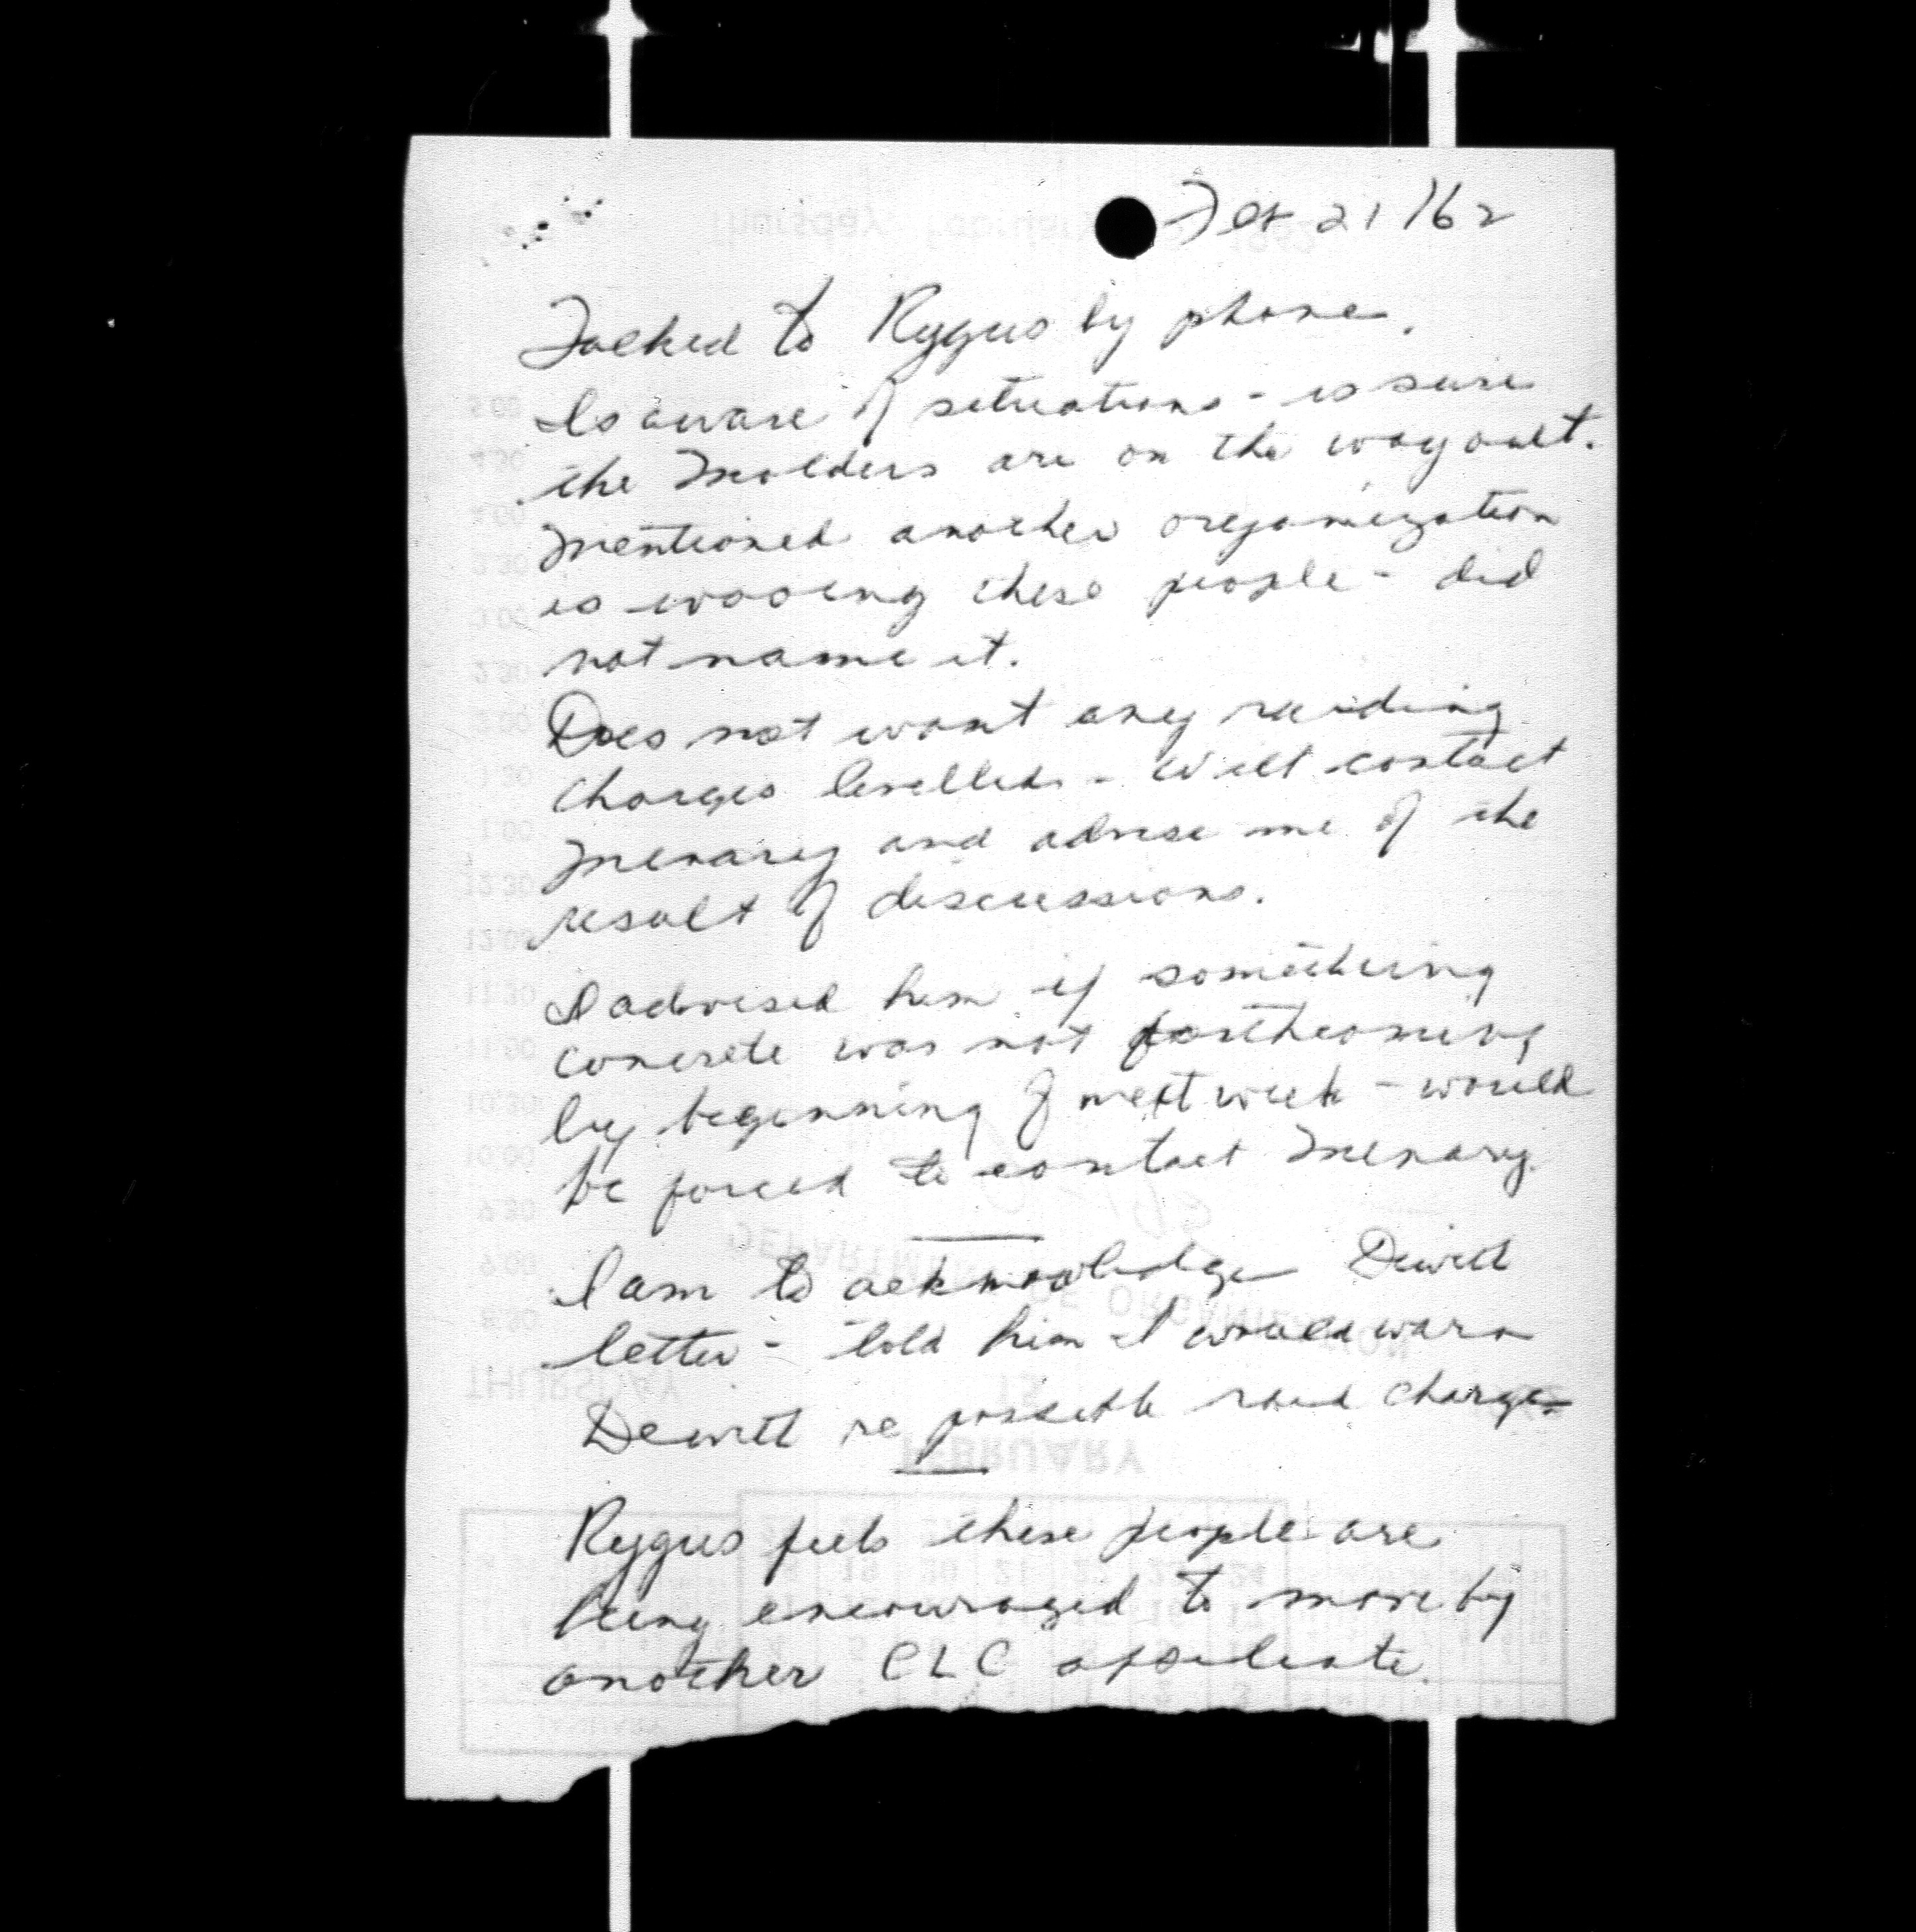 Feb 21/62
Talked to Rygus by phone.
Is aware of situations - is sure
the Molders are on the way out.
Mentioned another organization
is wooing these people - did
not name it.
Does not want any raiding
charges levelled - will contact
Menary and advise me of the
result of discussions.
I advised him if something
concrete was not forthcoming
by beginning of next week - would
be forced to contact Menary
I am to acknowledge Dewitt
letter - told him I would warn
Dewitt re possible raid charges
Rygus feels these people are
being encouraged to move by
another CLC affiliate.